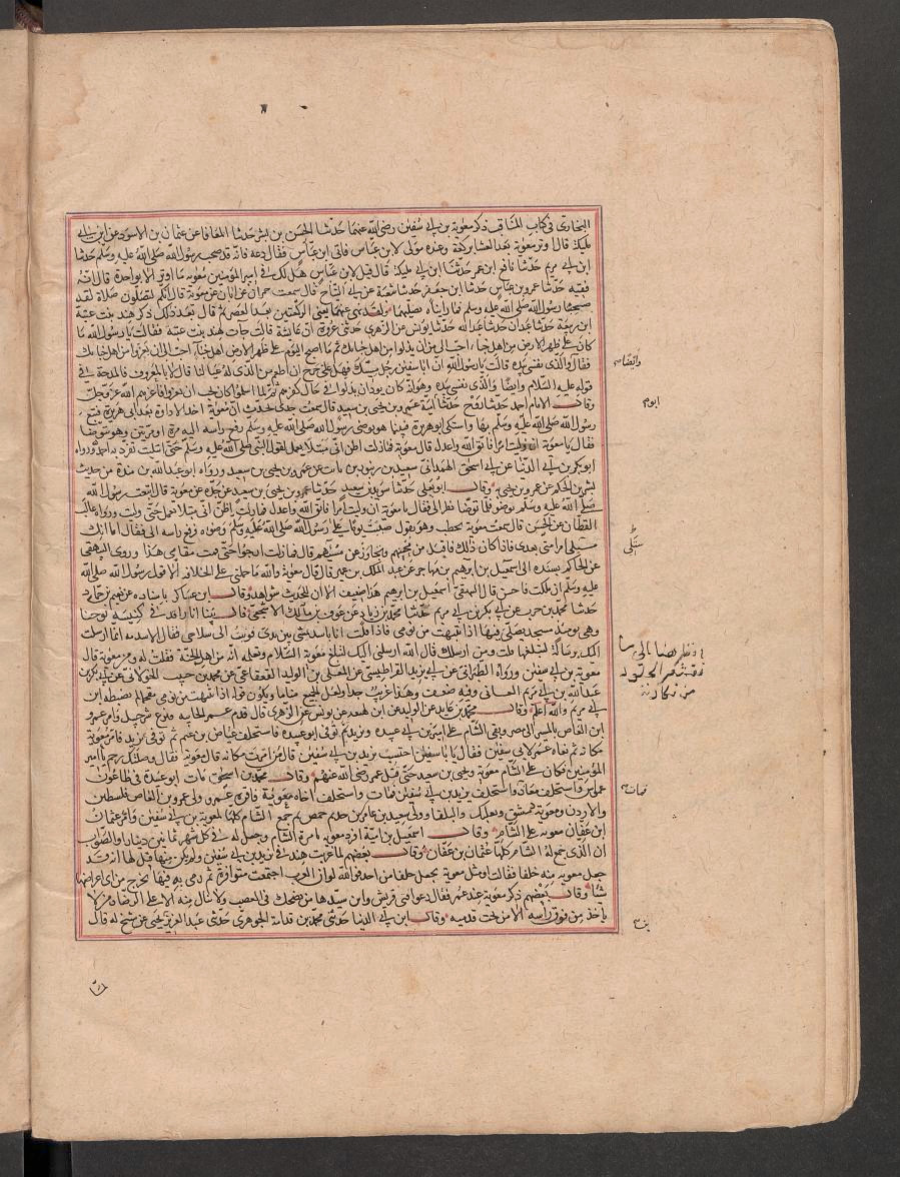 البخاري في كتاب المناقب ذكر معوية بن ابي سفين رضي الله عنهما حدثنا الحسن بن بشر حدثنا المعافا عن عثمان بن الاسود عن ابن ابي
مليكة قال اوتر معوية بعد العشا بركعة وعنده مولى لابن عباس فاتى ابن عباس فقال دعه فانه قد صحب رسول الله صلى الله عليه وسلم حدثنا
ابن ابي مريم حدثنا نافع ابن عمر حدثنا ابن ابي مليكة قال قيل لابن عباس هل لك في امير المؤمنين معوية ما اوتر الا بواحدة قال انه
فقيه حدثنا عمرو بن عباس حدثنا ابن جعفر حدثنا شعبة عن ابي التياح قال سمعت حمران عن ابان عن معوية قال انكم لتصلون صلاة لقد
صحبنا رسول الله صلى الله عليه وسلم فما رايناه يصليهما ولقد نهى عنهما يعني الركعتين بعد العصر ثم قال بعد ذلك ذكر هند بنت عتبة
ابن ربيعة حدثنا عبدان حدثنا عبد الله حدثنا يونس عن الزهري حدثني عروة ان عائشة قالت جات هند بنت عتبة فقالت يا رسول الله ما
كان على ظهر الارض من اهل خباء احب الي من ان يذلوا من اهل خبائك ثم ما اصبح اليوم على ظهر الارض اهل خباء احب الي ان يعزوا من اهل خبائك
فقال والذي نفسي بيده قالت يا رسول الله ان ابا سفين رجل مسيك فهل علي حرج ان اطعم من الذي له عيالنا قال لا الا بالمعروف فالمدحة في
قوله عليه السلام وايضا والذي نفسي بيده وهو انه كان يود ان يذلوا في حال كفرهم ثم لما اسلموا كان يحب ان يعزوا فاعزهم الله عز وجل
وقال الامام احمد حدثنا روح حدثنا ابو امية عمرو بن يحيى بن سعيد قال سمعت جدي يحدث ان معوية اخذ الادارة بعد ابي هريرة فتبع
رسول الله صلى الله عليه وسلم بها واشتكى ابو هريرة فبينما هو يوضي رسول الله صلى الله عليه وسلم رفع راسه اليه مرة او مرتين وهو يتوضا
فقال يا معوية ان وليت امرا فاتق الله واعدل قال معوية فما زلت اظن اني مبتلا بعمل لقول النبي صلى الله عليه وسلم حتى ابتليت تفرد به احمد ورواه
ابو بكر بن ابي الدنيا عن ابي اسحق الهمداني سعيد بن زنبور بن ثابت عن عمرو بن يحيى بن سعيد ورواه ابو عبد الله بن مندة من حديث
بشر بن الحكم عن عمرو بن يحيى وقال ابو يعلى حدثنا سويد بن سعيد حدثنا عمرو بن يحيى بن سعيد عن جده عن معوية قال اتبعت رسول الله
صلى الله عليه وسلم بوضو فلما توضا نظر الي فقال يا معوية ان وليت امرا فاتق الله واعدل فما زلت اظن اني مبتلا بعمل حتى وليت ورواه غالب
القطان عن الحسن قال سمعت معوية يخطب وهو يقول صببت يوما على رسول الله صلى الله عليه وسلم وضوه فرفع راسه الي فقال اما انك
ستلي امر امتي بعدي فاذا كان ذلك فاقبل من محسنهم وتجاوز عن مسيئهم قال فما زلت ارجوا حتى قمت مقامي هذا وروى البيهقي
عن الحاكم بسنده الى اسمعيل بن ابرهيم بن مهاجر عن عبد الملك بن عمير قال قال معوية والله ما حملني على الخلافة الا قول رسول الله صلى الله
عليه وسلم ان ملكت فاحسن قال البيهقي اسمعيل بن ابرهيم هذا ضعيف الا ان للحديث شواهد وقال ابن عساكر باسناده عن نعيم بن حماد
حدثنا محمد بن حرب عن ابي بكر بن ابي مريم حدثنا محمد بن زياد عن عوف بن مالك الاشجعي قال بينا انا راقد في كنيسة يوحنا
وهي يومئذ مسجد يصلى فيها اذ انتبهت من نومي فاذا انا باسد يمشي بين يدي فوثبت الى سلاحي فقال الاسد مه انما ارسلت
اليك برسالة لتبلغها قلت ومن ارسلك قال الله ارسلني اليك لتبلغ معوية السلام وتعلمه انه من اهل الجنة فقلت له ومن معوية قال
معوية بن ابي سفين ورواه الطبراني عن ابي يزيد القراطيسي عن المعلى بن الوليد القعقاعي عن محمد بن حبيب الخولاني عن ابي بكر بن
عبد الله بن ابي مريم الغساني وفيه ضعف وهذا غريب جدا ولعل الجميع مناما ويكون قوله اذ انتبهت من نومي مقحما لم يضبطه ابن
ابي مريم والله اعلم وقال محمد بن عايد عن الوليد عن ابن لهيعة عن يونس عن الزهري قال قدم عمر الجابية فنزع شرحبيل وامر عمرو
ابن العاص بالمسير الى مصر وبقي الشام على اميرين ابي عبيدة ويزيد ثم توفي ابو عبيدة فاستخلف عياض بن غنم ثم توفي يزيد فامر معوية
مكانه ثم نعاه عمر لابي سفين فقال يا ابا سفين احتسب يزيد بن ابي سفين قال من امرت مكانه قال معوية فقال وصلتك رحم يا امير
المؤمنين فكان على الشام معوية وعمير بن سعيد حتى قتل عمر رضي الله عنهم وقال محمد بن اسحق مات ابو عبيدة في طاعون
عمواس واستخلف معاذ واستخلف يزيد بن ابي سفين فمات واستخلف اخاه معوية فاقره عمر وولى عمرو بن العاص فلسطين
والاردن ومعوية دمشق وبعلبك والبلقا وولى سعيد بن عامر بن حذيم حمص ثم جمع الشام كلها لمعوية بن ابي سفين وامر عثمان
ابن عفان معوية على الشام وقال اسمعيل بن امية افرد معوية بامرة الشام وجعل له في كل شهر ثمانين دينارا والصواب
ان الذي جمع له الشام كلها عثمان بن عفان وقال بعضهم لما عزيت هند في يزيد بن ابي سفين ولم يكن منها قيل لها انه قد
جعل معوية منه خلفا فقالت او مثل معوية يجعل خلفا من احد فوالله لو ان العرب اجتمعت متوافرة ثم رمي به فيها لخرج من اي اعراضها
شاء وقال بعضهم ذكر معوية عند عمر فقال دعوا فتى قريش وابن سيدها من يضحك في الغضب ولا ينال منه الا على الرضا ومن لا
ياخذ من فوق راسه الا من تحت قدميه وقال ابن ابي الدنيا حدثني محمد بن قدامة الجوهري حدثني عبد العزيز بن يحيى عن شيخ له قال